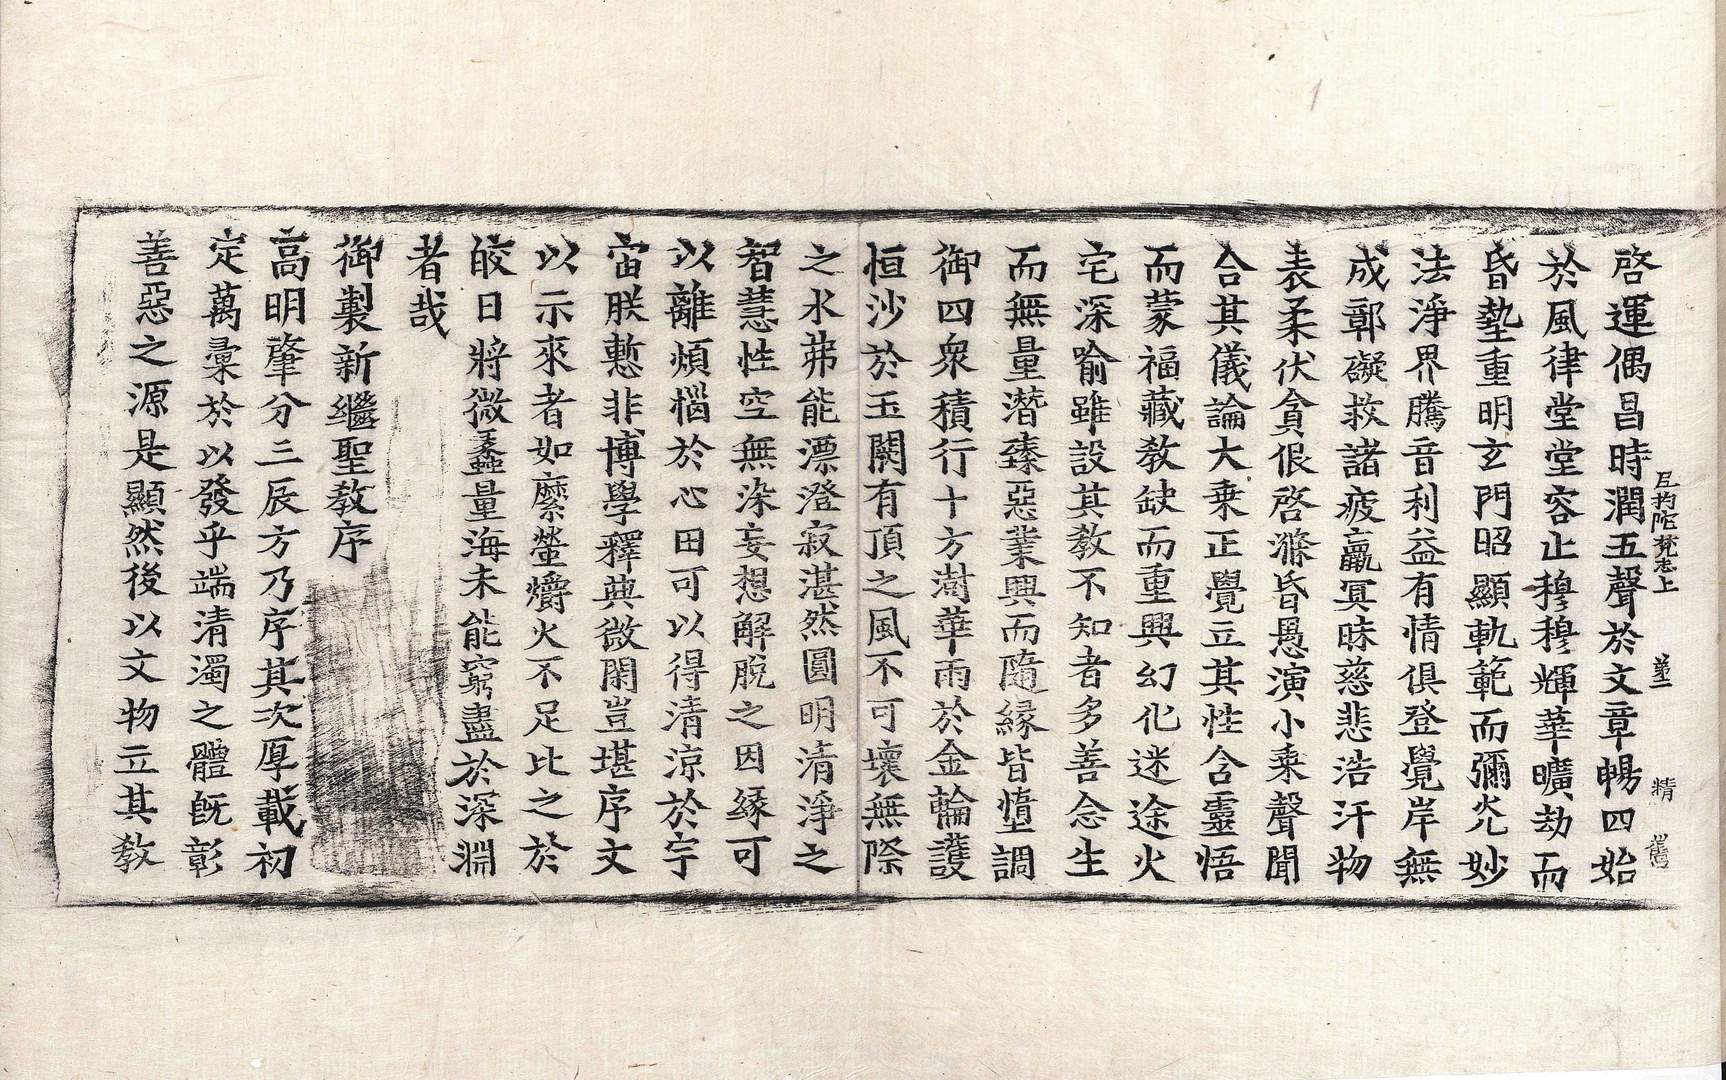 尼拘陀梵志上 苐二 精
啓運偶昌時潤五聲於文章暢四始
於風律堂堂容止穆穆輝華曠劫而
昏墊重明玄門昭顯軌範而彌光妙
法淨界騰音利益有情俱登覺岸無
成鄣礙救諸疲羸冥昧慈悲浩汗物
表柔伏貪佷啓滌昏愚演小乘聲聞
合其儀論大乘正覺立其性含靈悟
而蒙福藏教缺而重興幻化迷途火
宅深喻雖設其教不知者多善念生
而無量潛臻惡業興而隨緣皆墮調
御四衆積行十方澍華雨於金輪護
恒沙於玉闕有頂之風不可壞無際
之水弗能漂澄寂湛然圓明清淨之
智慧性空無染妄想解脫之因緣可
以離煩惱於心田可以得清涼於宇
宙朕慙非博學釋典微閑豈堪序文
以示來者如縻螢爝火不足比之於
皎日將微蠡量海未能窮盡於深淵
者哉
御製新繼聖教序
高明肇分三辰方乃序其次厚載初
定萬彙於以發乎端清濁之體旣彰
善惡之源是顯然後以文物立其教